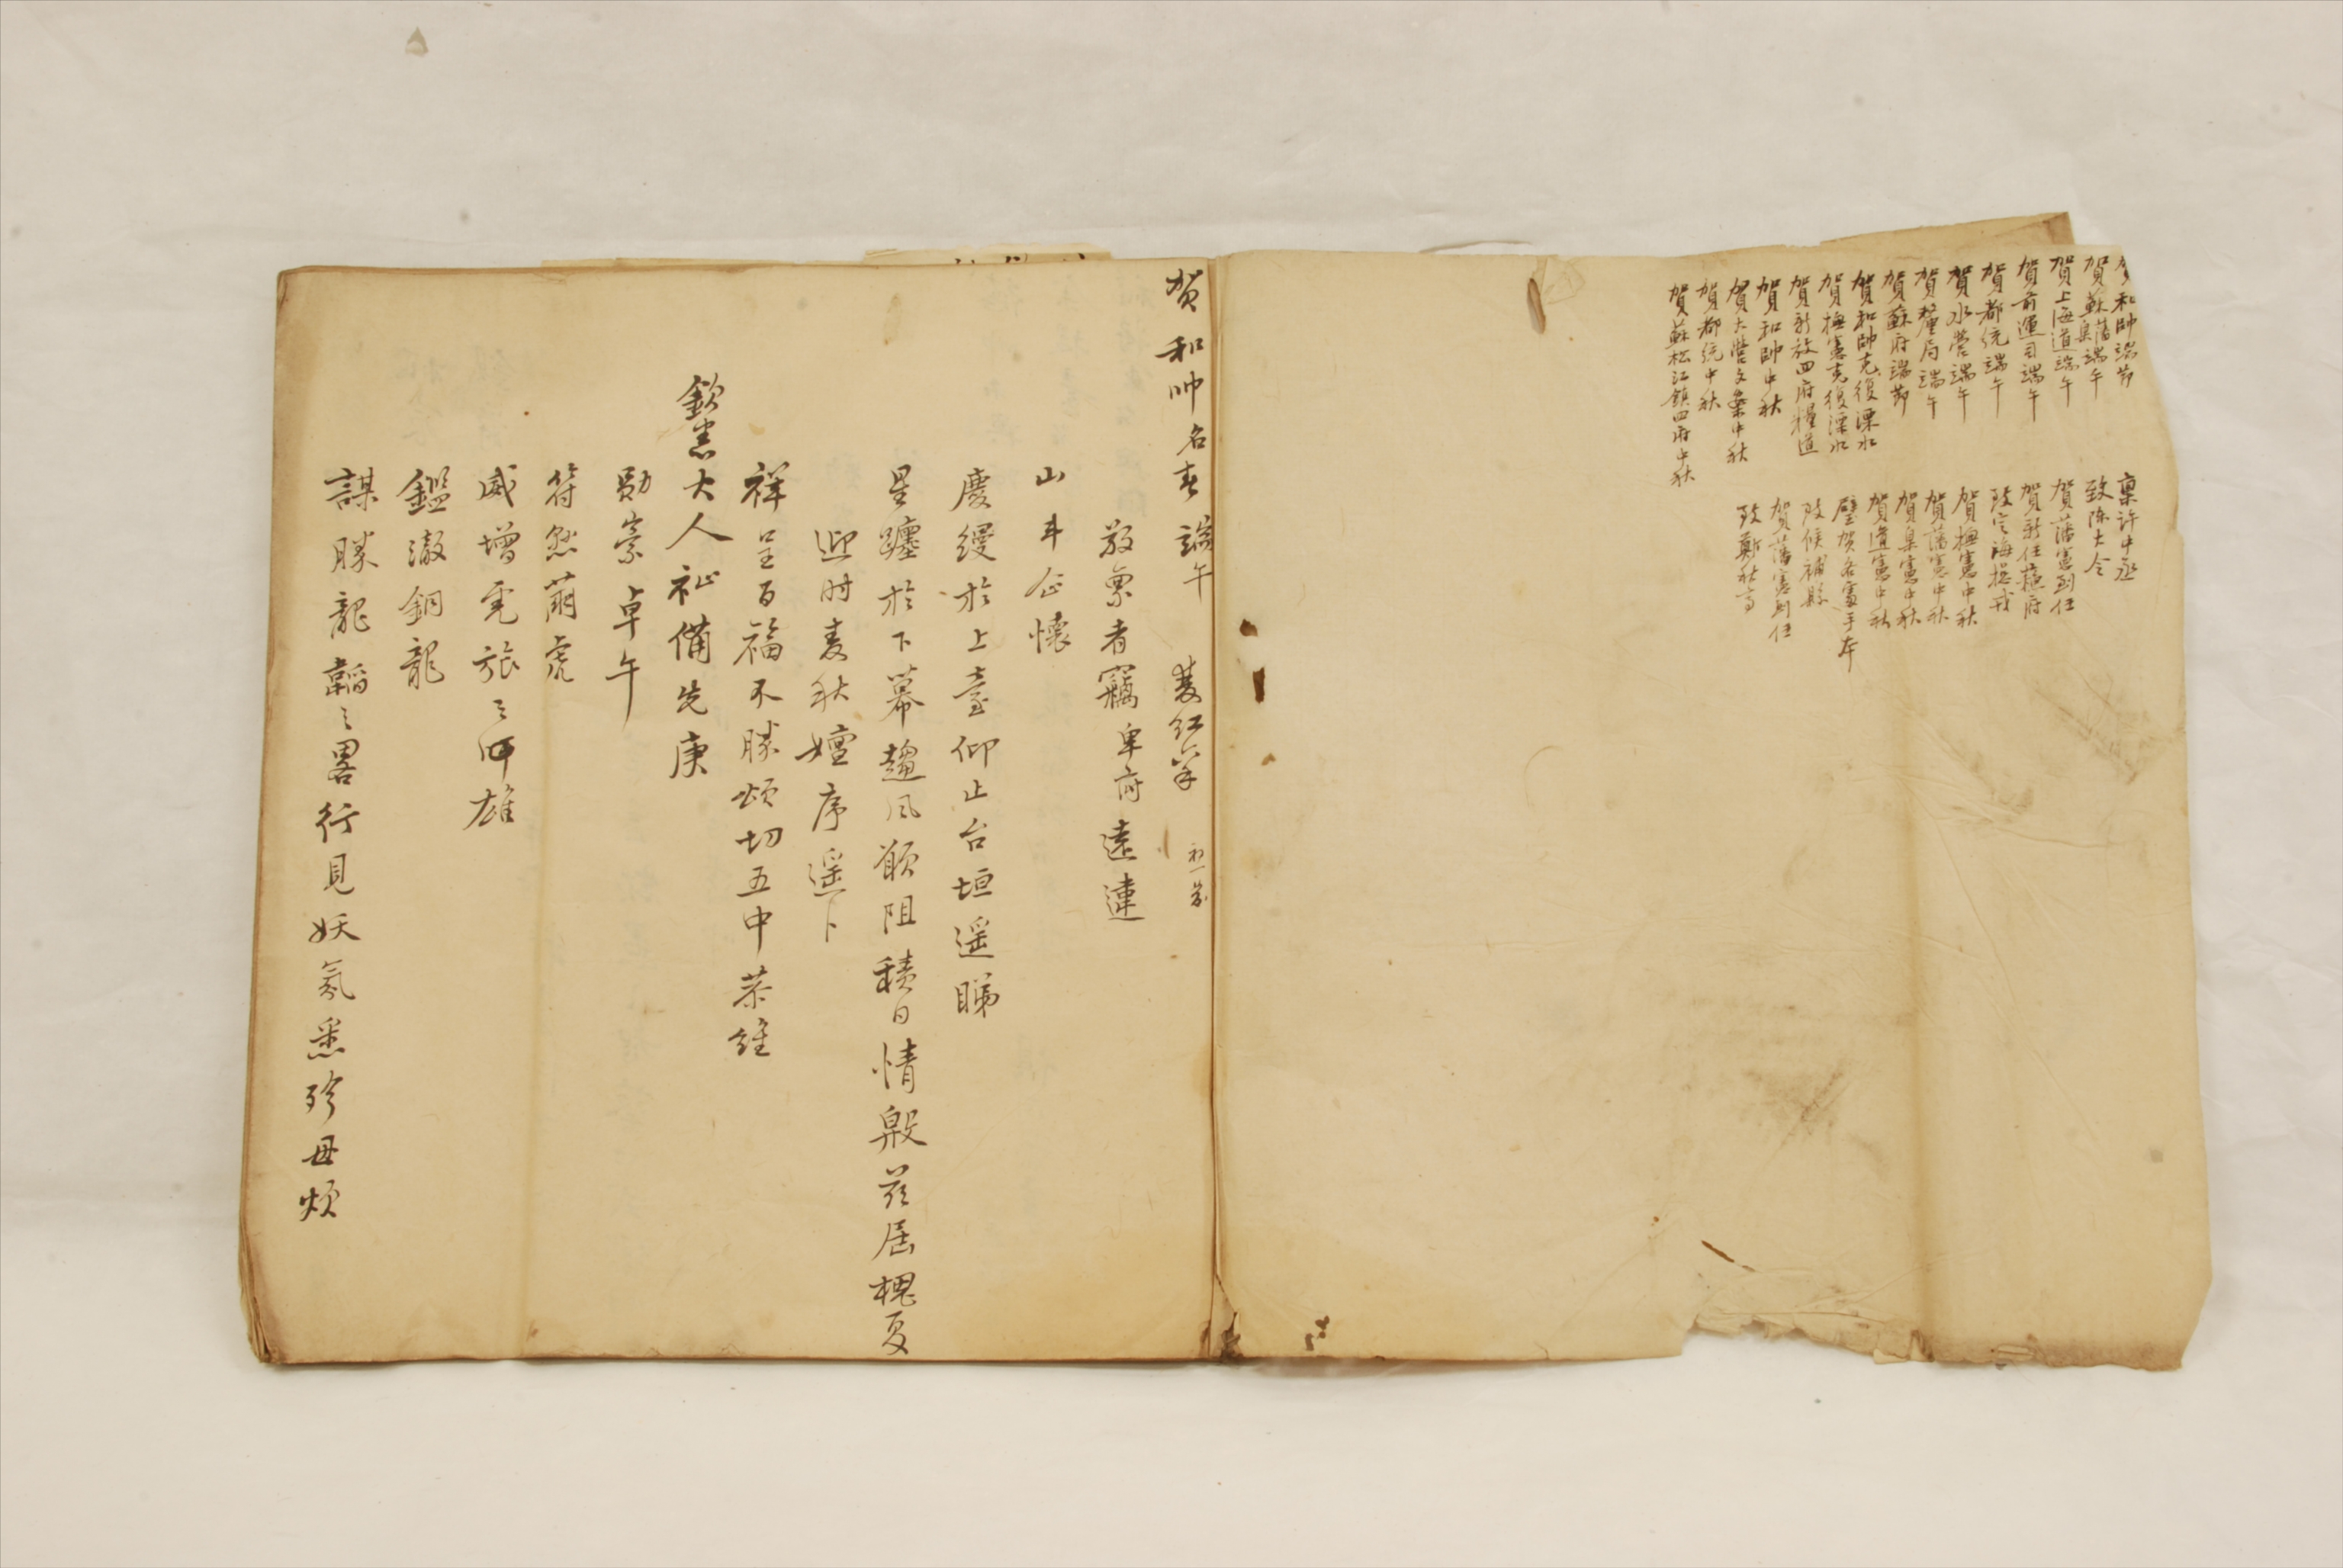 賀和帥端節
賀蘇藩臬端午
賀上海道端午
賀前運司端午
賀都統端午
賀水營端午
賀釐局端午
賀蘇府端節
賀和帥克復溧水
賀撫憲克復溧水
賀新放四府糧道
賀和帥中秋
賀大營文案中秋
賀都統中秋
賀蘇松江鎮四府中秋
稟許中丞
致陈大令
賀藩憲到任
賀新任蘓府
致定海捴戎
賀撫憲中秋
賀藩憲中秋
賀臬憲中秋
賀道憲中秋
璧賀各憲手本
致候補縣
賀藩憲到任
致鄭秋亭
賀和帥名春端午 雙红
敬稟者竊卑府遠違
山斗企懷
慶縵於上臺仰止台垣遥睇
星躔於下幕趨风願阻積日情殷茲届槐夏
迎时麦秋嬗序遥卜
祥呈百福不勝頌切五中恭維
欽憲大人祉備先庚
勛崇卓午
符懸萠虎
威增電旅之師雄
鑑澈銅龍
謀勝龍韜之畧行見妖氛悉殄毋煩